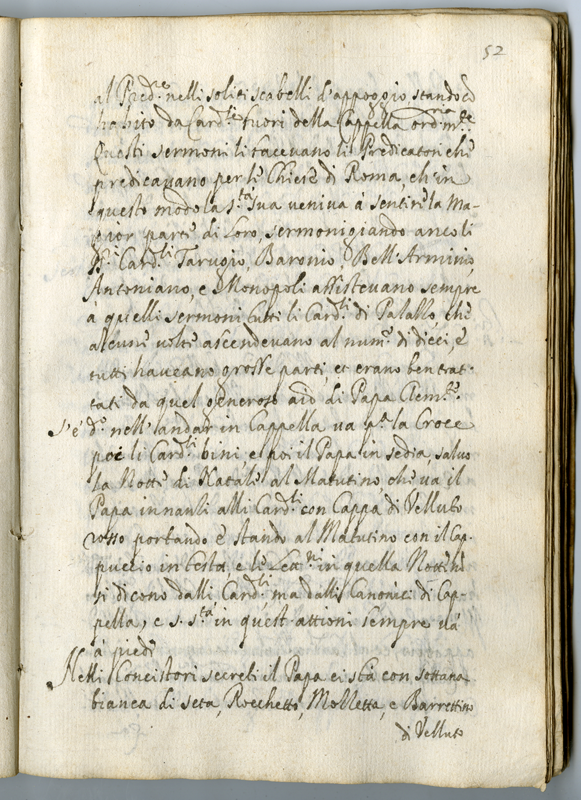 52
al Pred.re nelli soliti scabelli d'appoggio stando in
habito da Card.le fuori della Cappella ord.m.te
Questi sermoni li facevano li Predicatori che
predicavano per le Chiese di Roma, ch'in
questo modo la S.tà sua veniva à sentire la ma-
gior parte di loro, sermonigiando anco li
SS.i Card.li Tarugio, Baronio, Bell'Arminio,
Antoniano, e Monopoli assistevano sempre
a quelli sermoni tutti li Card.li di Palazzo, che
alcune volte ascendevano al num.o di dieci, e
tutti haveano grosse parti, et erano ben trat-
tati da quel generoso aio di Papa Clem.te
S'è d.o nell'andar in Cappella va p.a la Croce
poi li Card.li bini e poi il Papa in sedia, salvo
la Notte di Natale al Matutino che va il
Papa innanti alli Card.li con Cappa di Velluto
rosso portando e stando al Matutino con il Cap-
puccio in testa e le Lett.ni in quella Notte non
si dicono dalli Card.li ma dalli Canonici di Cap-
pella, e S. S.tà in quest'attioni sempre và
à piedi
Nelli Concistori secreti il Papa ci stà con sottana
bianca di seta, Rocchetto, Mozzetta, e Barrettino
di Velluto